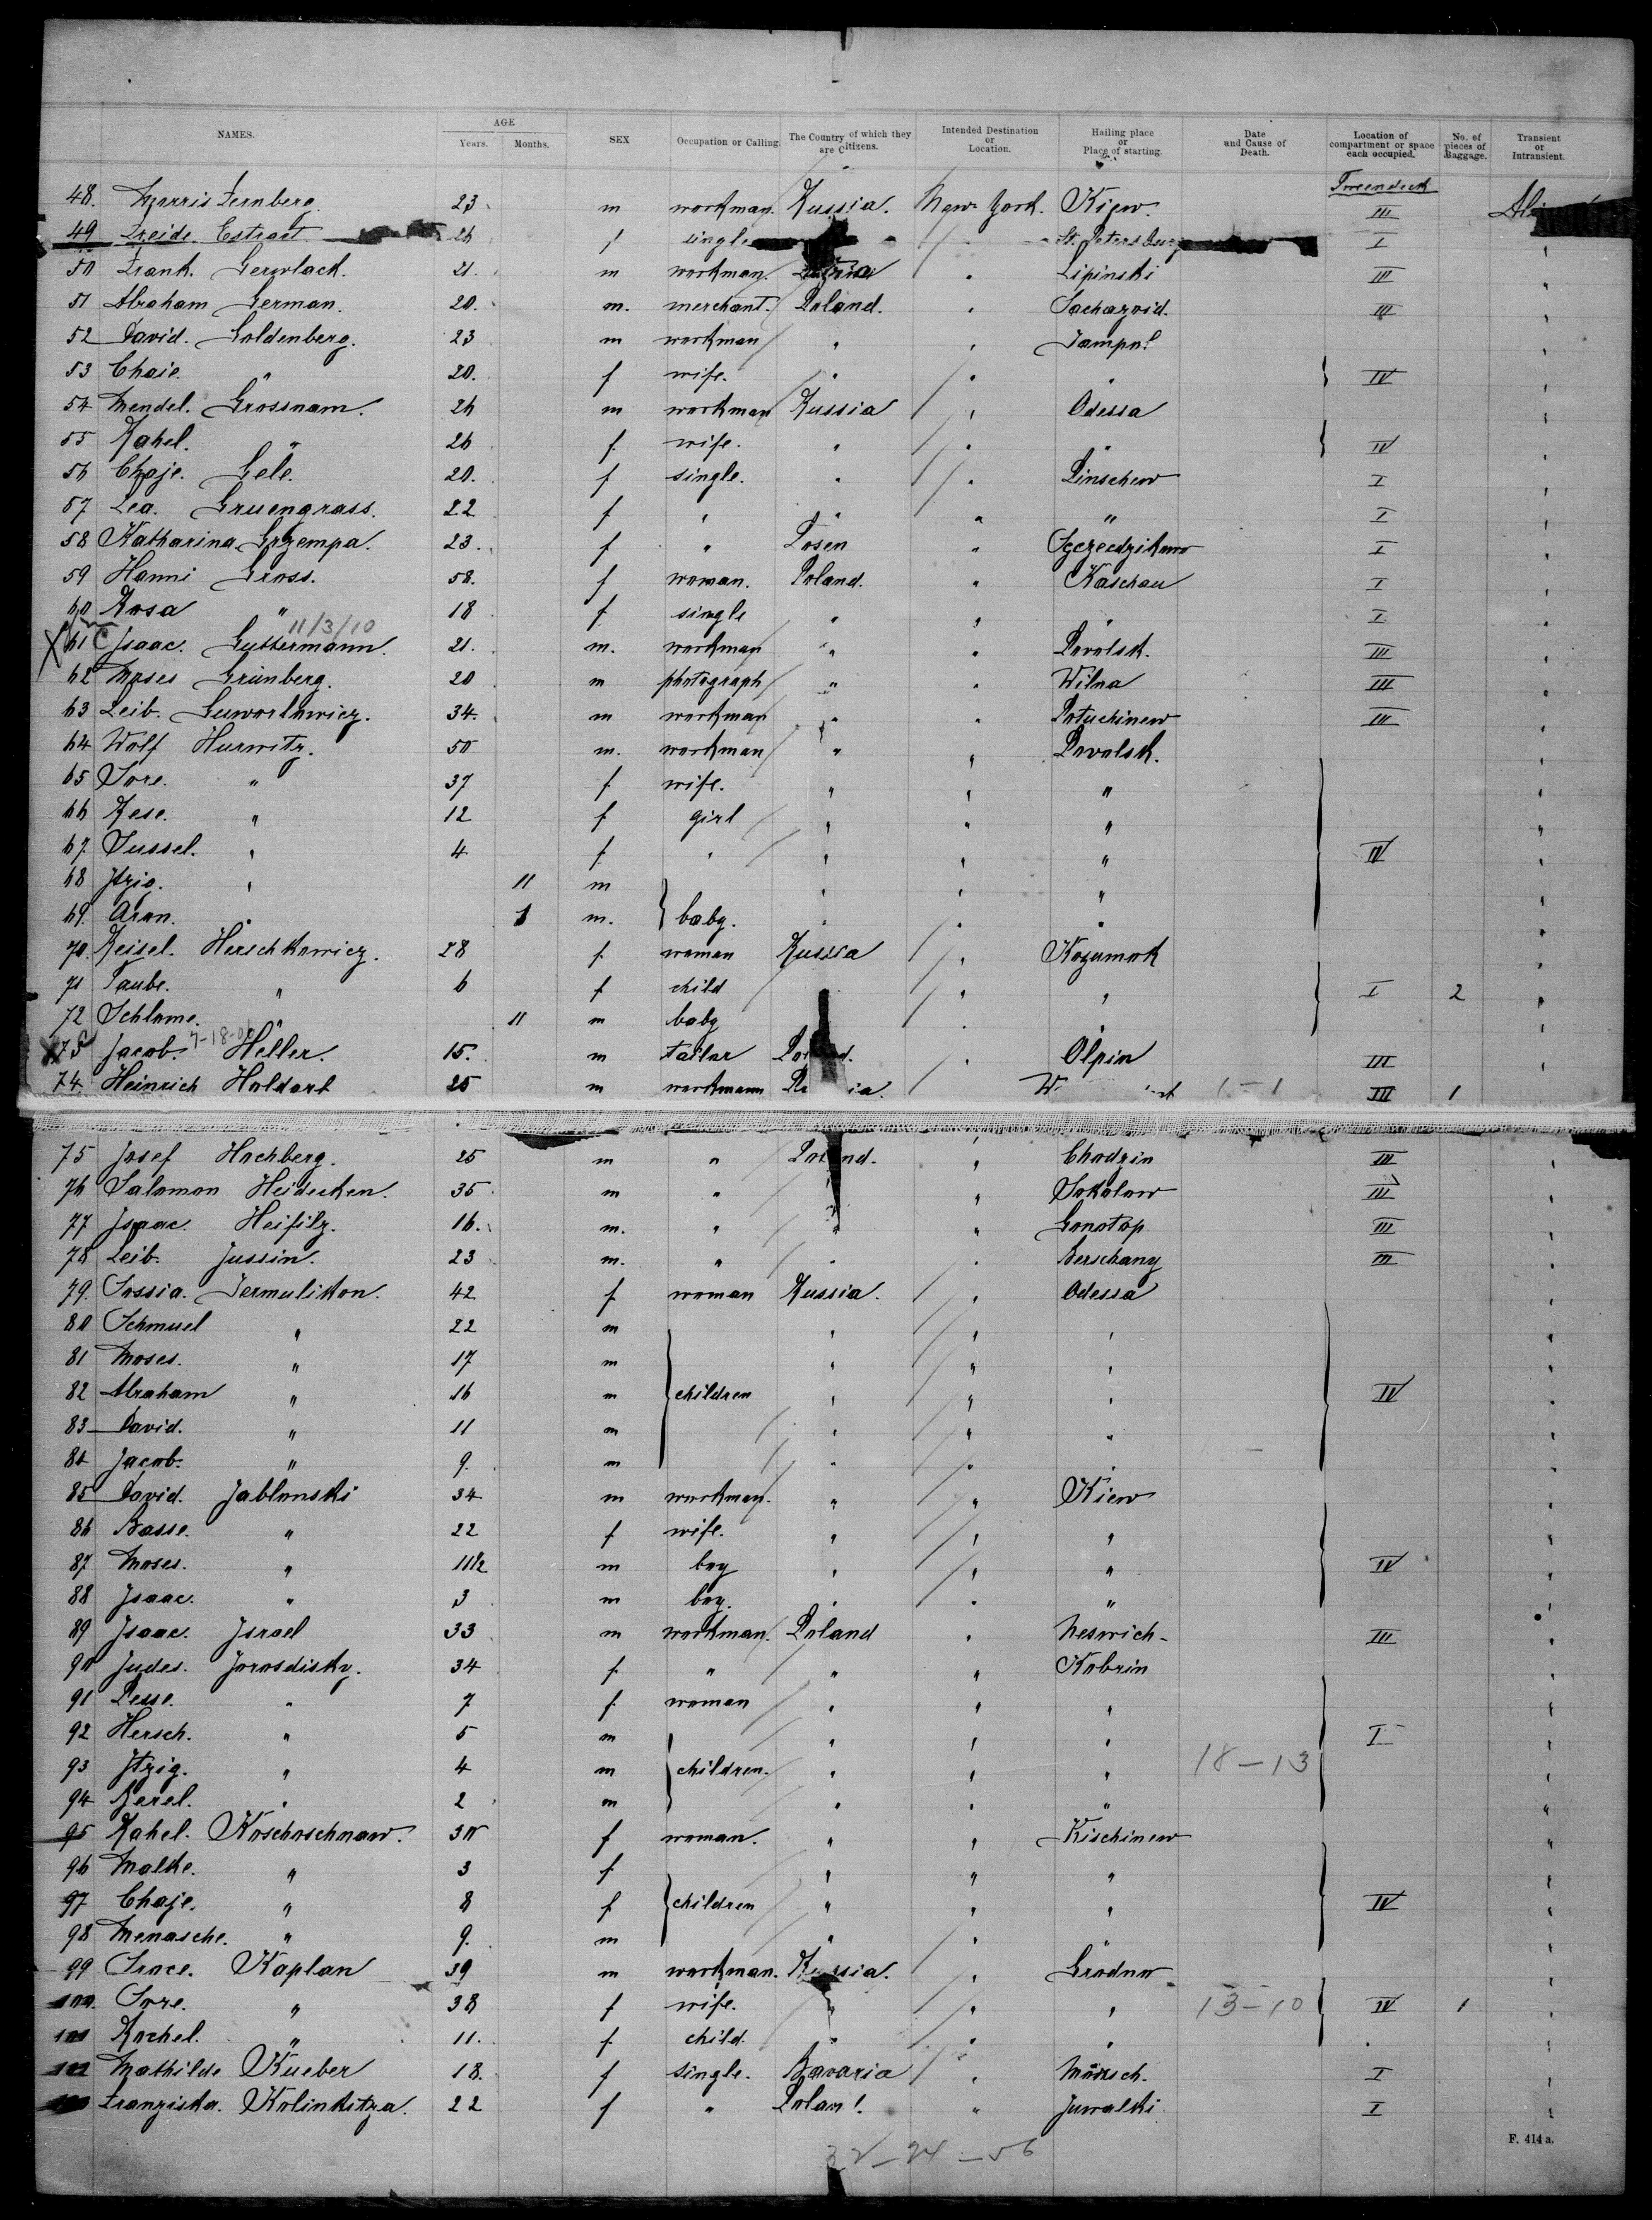 NAMES. AGE Years. Months. SEX Occupation or Calling. The Country of which they are Citizens. Intended Destination or Location. Hailing place or Place of starting. Date and Cause of Death. Location of compartment or space each occupied. No. of pieces of Baggage. Transient or Intransient.
Tweendeck
48. Morris Fernberg. 23 m workman. Russia. New York. Kiew. III
49 Freide. Estraet 26 f single " St. Petersburg I "
50 Frank. Gerwlack. 21. m workman. " Lipinski III "
51 Abraham German. 20. m. merchant. Poland. " Sacharoid. III "
52 David. Goldenberg. 23 m workman " " Jampol "
53 Chaie. " 20. f wife. " " " IV "
54 Mendel. Grossnam. 26 m workman Russia " Odessa "
55 Rahel. " 26 f. wife. " " " IV "
56 Chaje. Gele. 20. f single. " " Pinschew I "
57 Lea. Gruengrass. 22 f " " " " I "
58 Katharina Grzempa. 23. f " Posen " I "
59 Hanni Gross. 58. f woman. Poland. " Kaschau I "
60 Rosa " 18 f single " " " I "
11/3/10
X 61 Isaac. Guttermann. 21. m. workman " " Povolsk. III "
62 Moses Grünberg. 20 m photograph " " Wilna III "
63 Leib. 34. m workman " " Potuchinew III "
64 Wolf Hurwitz. 50 m. workman " " Povolsk. "
65 Sore. " 37 f wife. " " " "
66 Rese. " 12 f girl " " " "
67. Sussel. " 4 f " " " " IV "
68 Itzig. " 11 m " " " "
69. Aron. " 1 m. baby. " " " "
70. Reisel. Herschkowicz. 28 f. woman Russia " Kozumok "
71 Taube. " 6 f child " " I 2 "
72 Schlome. " 11 m baby " " "
7-18-0
X 73 Jacob. Heller. 15. m tailor " Olpin III "
74. Heinrich Holdort 25 m workmann III 1
75 Josef Hochberg. 25 m " " Chodzin III "
76 Salomon Heidecken. 35 m " " " Sokolow III "
77 Isaac. Heifilz. 16. m. " " " Gonotop III "
78 Leib. Jussin. 23 m. " " " Berschany III "
79. Sossia. Jermulikon. 42 f woman Russia. " Odessa "
80 Schmuel " 22 m " " " "
81 Moses. " 17 m " " " "
82 Abraham " 16 m children " " " IV "
83 David. " 11 m " " " "
84 Jacob. " 9. m " " " "
85 David. Jablonski 34 m workman. " " Kiew "
86 Basse. " 22 f wife. " " " "
87 Moses. " 11½ m boy " " " IV "
88 Isaac. " 3 m boy. " " " "
89 Isaac. Israel 33 m workman. Poland " Neswich- III "
90 Judes. Jorosdisky. 34 f. " " " Kobrin "
91 Pesse. " 7 f. woman " " " "
92 Hersch. " 5 m " " " I "
93 Itzig. " 4 m children. " " " 18-13 "
94 Berel. " 2 m " " " "
95 Rahel. Koschoschnaw. 30 f woman. " " Kischinew "
96 Malke. " 3 f " " " "
97 Chaje. " 8 f children " " " IV "
98 Menasche. " 9. m " " " "
99 Srace. Kaplan 39 m workman. Russia. " Grodno "
100. Sore. " 38 f wife. " " " 13-10 IV 1 "
101 Rochel. " 11. f. child. " " " "
102 Mathilde Kueber 18. f single. Bavaria " Mörsch. I "
Franziska. Kolinkitza. 22 f " Poland. " Juwalki I "
F. 414 a.
32-24-56